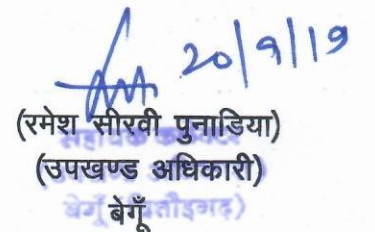 20/9/19
(रमेश सीरवी पुनाडिया)
(उपखण्ड अधिकारी)
बेगूँ